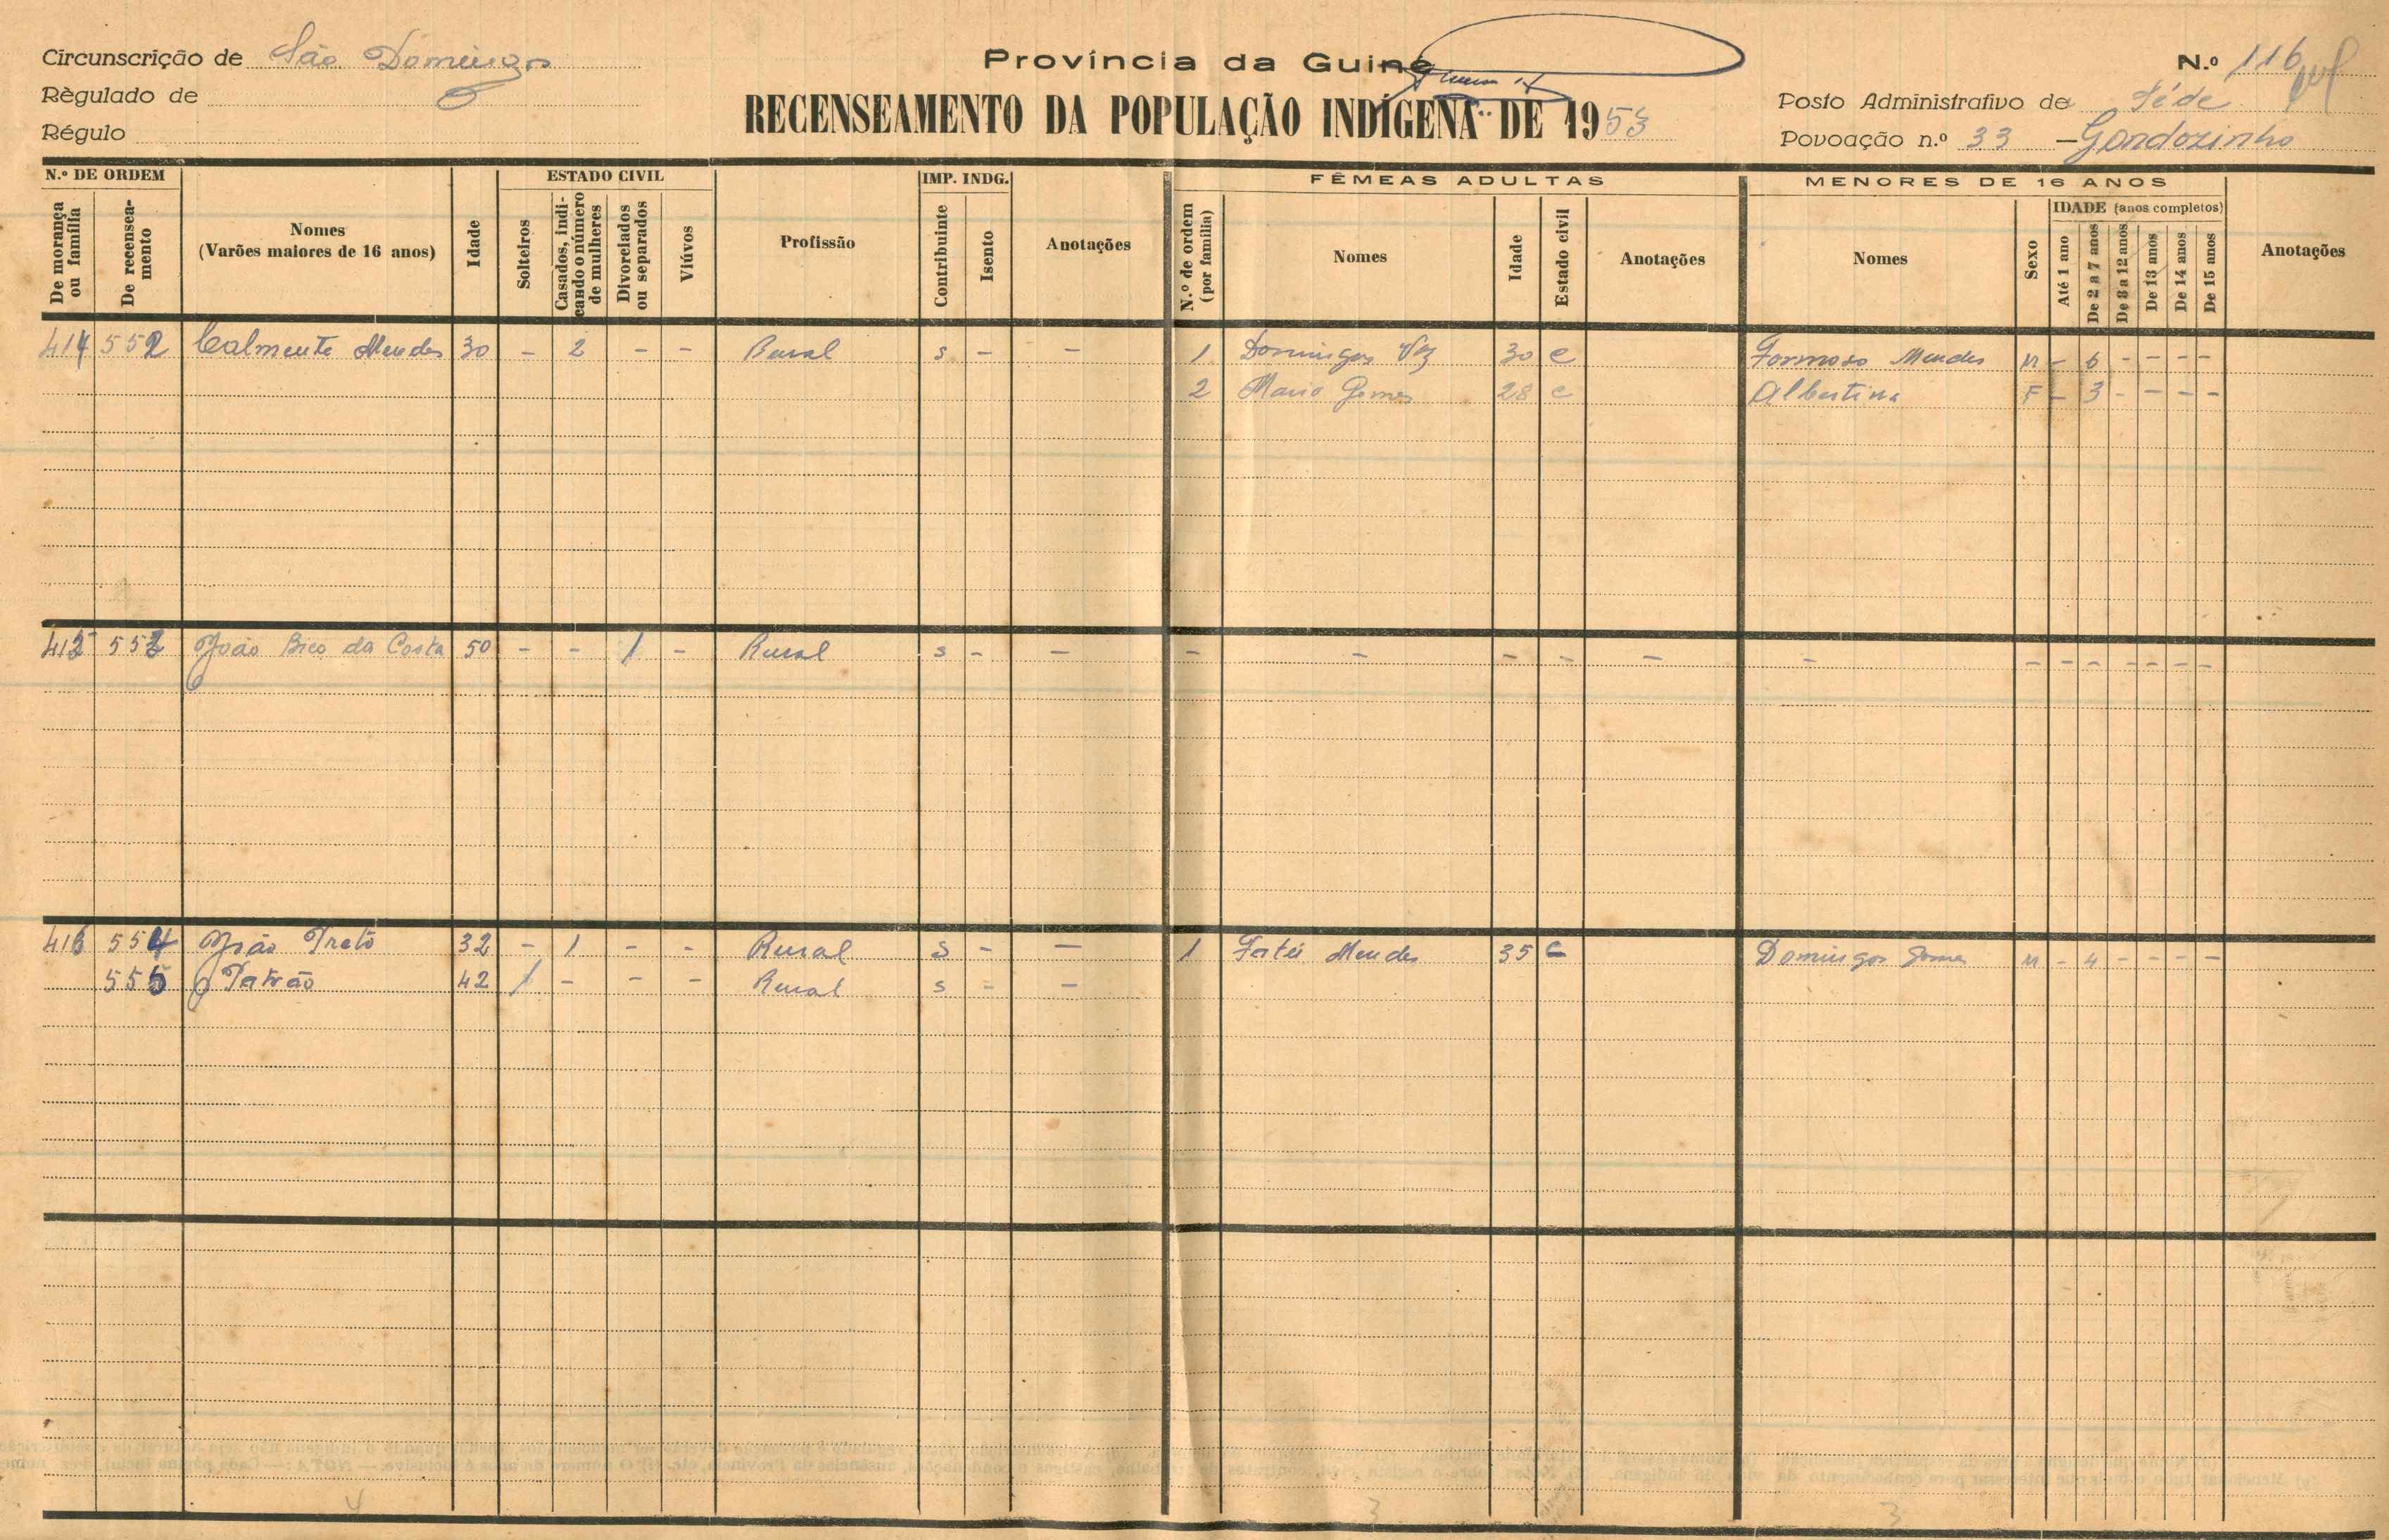 Circunscrição de São Domingos
Règulado de
Régulo
Província da Guiné
RECENSEAMENTO DA POPULAÇÃO INDÍGENA DE 1953
N.º 116
Posto Administrativo de Séde
Povoação n.º 33 — Gandozinho
N.º DE ORDEM
De morança ou família
De recenseamento
Nomes
(Varões maiores de 16 anos)
Idade
ESTADO CIVIL
Solteiros
Casados, indicando o número de mulheres
Divorciados ou separados
Viúvos
Profissão
IMP. INDG.
Contribuinte
Isento
Anotações
FÊMEAS ADULTAS
N.º de ordem (por família)
Nomes
Idade
Estado civil
Anotações
MENORES DE 16 ANOS
Nomes
Sexo
IDADE (anos completos)
Até 1 ano
De 2 a 7 anos
De 8 a 12 anos
De 13 anos
De 14 anos
De 15 anos
Anotações
414 552 Calmente Mendes 30 - 2 - - Rural s - - 1 Domingas Vaz 30 C Formoso Mendes M - 6 - - - -
2 Maria Gomes 28 C Albertina F - 3 - - - -
João Bico da Costa 50 - - 1 - Rural s - - - - - - - - - - - - - - -
416 554 João Preto 32 - 1 - - Rural s - - 1 Mendes 35 C Domingos Gomes M - 4 - - - -
555 Patrão 42 1 - - - Rural s - -
4 3 3